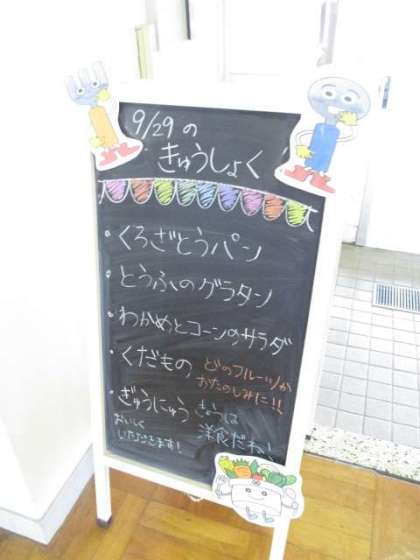 9/29の
きゅうしょく
・くろざとうパン
・とうふのグラタン
・わかめとコーンのサラダ
・くだもの
どのフルーツか
おたのしみに!!
・ぎゅうにゅう
きょうは
洋食だね!
おいしく
いただきます!